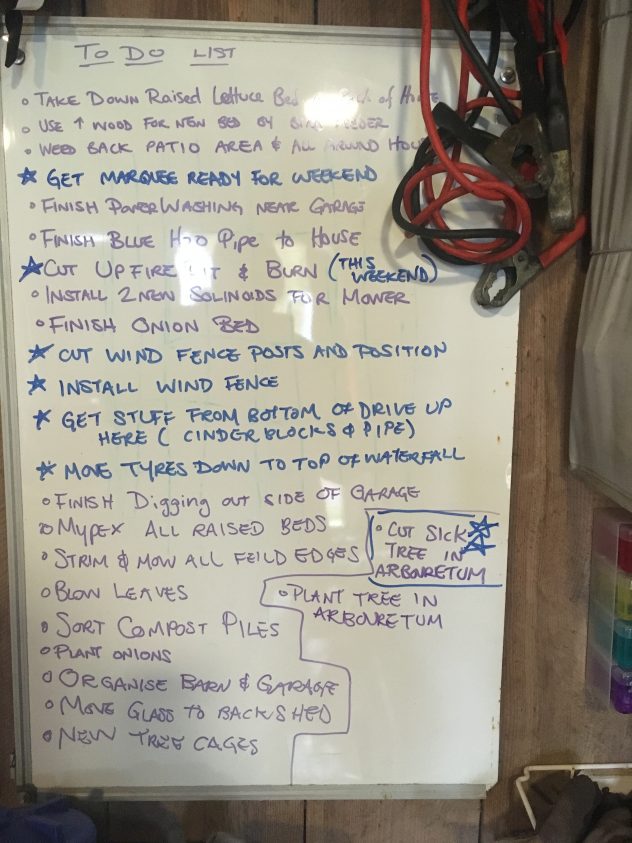 TO DO LIST
TAKE DOWN RAISED LETTUCE BED Back of House
USE ↑ WOOD FOR NEW BED BY FEEDER
WEED BACK PATIO AREA & ALL AROUND
★ GET MARQUEE READY FOR WEEKEND
FINISH POWERWASHING NEAR GARAGE
FINISH BLUE H2O PIPE TO HOUSE
★ CUT UP FIRE & BURN (THIS
WEEKEND)
INSTALL 2 NEW SOLINOIDS FOR MOWER
FINISH ONION BED
★ CUT WIND FENCE POSTS AND POSITION
★ INSTALL WIND FENCE
★ GET STUFF FROM BOTTOM OF DRIVE UP
HERE (CINDER BLOCKS & PIPE)
★ MOVE TYRES DOWN TO TOP OF WATERFALL
FINISH DIGGING OUT SIDE OF GARAGE
MYPEX ALL RAISED BEDS
STRIM & MOW ALL FEILD EDGES
BLOW LEAVES
SORT COMPOST PILES
PLANT ONIONS
ORGANISE BARN & GARAGE
MOVE GLASS TO BACKSHED
NEW TREE CAGES
CUT SICK ★
TREE IN ★
ARBOURETUM
PLANT TREE IN
ARBOURETUM